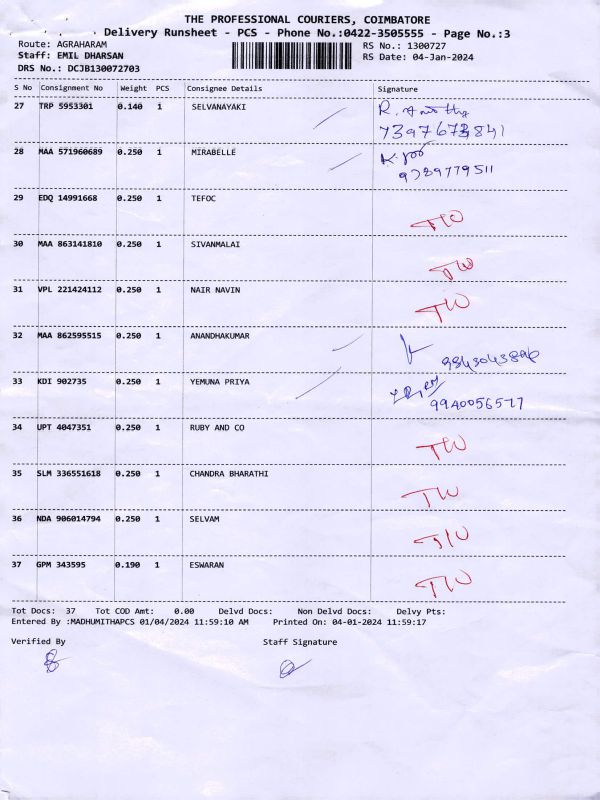 THE PROFESSIONAL COURIERS, COIMBATORE
Delivery Runsheet - PCS - Phone No.:0422-3505555 - Page No.:3
Route: AGRAHARAM RS No.: 1300727
Staff: EMIL DHARSAN RS Date: 04-Jan-2024
DRS No.: DCJB130072703
S No Consignment No Weight PCS Consignee Details Signature
27 TRP 5953301 0.140 1 SELVANAYAKI
7397673841
28 MAA 571960689 0.250 1 MIRABELLE
9789779511
29 EDQ 14991668 0.250 1 TEFOC
T/W
30 MAA 863141810 0.250 1 SIVANMALAI
T/W
31 VPL 221424112 0.250 1 NAIR NAVIN
T/W
32 MAA 862595515 0.250 1 ANANDHAKUMAR
33 KDI 902735 0.250 1 YEMUNA PRIYA
9940056577
34 UPT 4047351 0.250 1 RUBY AND CO
T/W
35 SLM 336551618 0.250 1 CHANDRA BHARATHI
T/W
36 NDA 906014794 0.250 1 SELVAM
T/W
37 GPM 343595 0.190 1 ESWARAN
T/W
Tot Docs: 37 Tot COD Amt: 0.00 Delvd Docs: Non Delvd Docs: Delvy Pts:
Entered By :MADHUMITHAPCS 01/04/2024 11:59:10 AM Printed On: 04-01-2024 11:59:17
Verified By Staff Signature